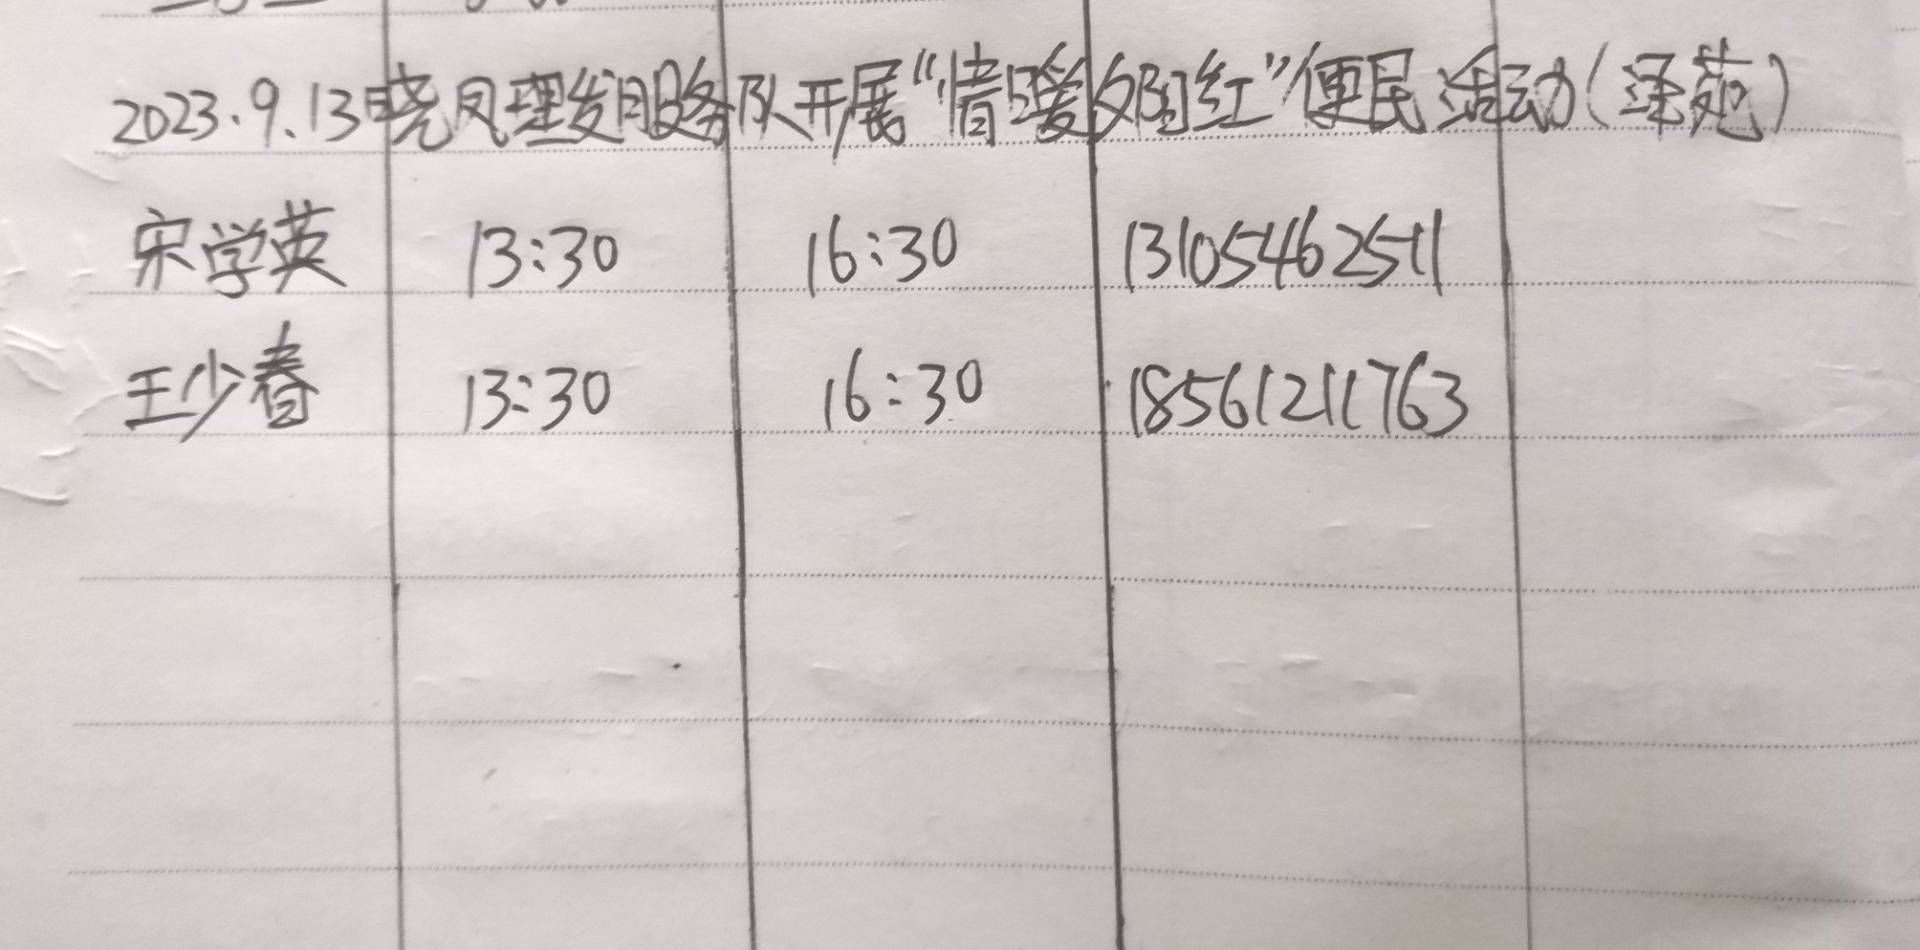 2023.9.13晓凤理发服务队开展“情暖夕阳红”便民活动(泽苑)
宋学英 13:30 16:30 13105462511
王少春 13:30 16:30 18561211763